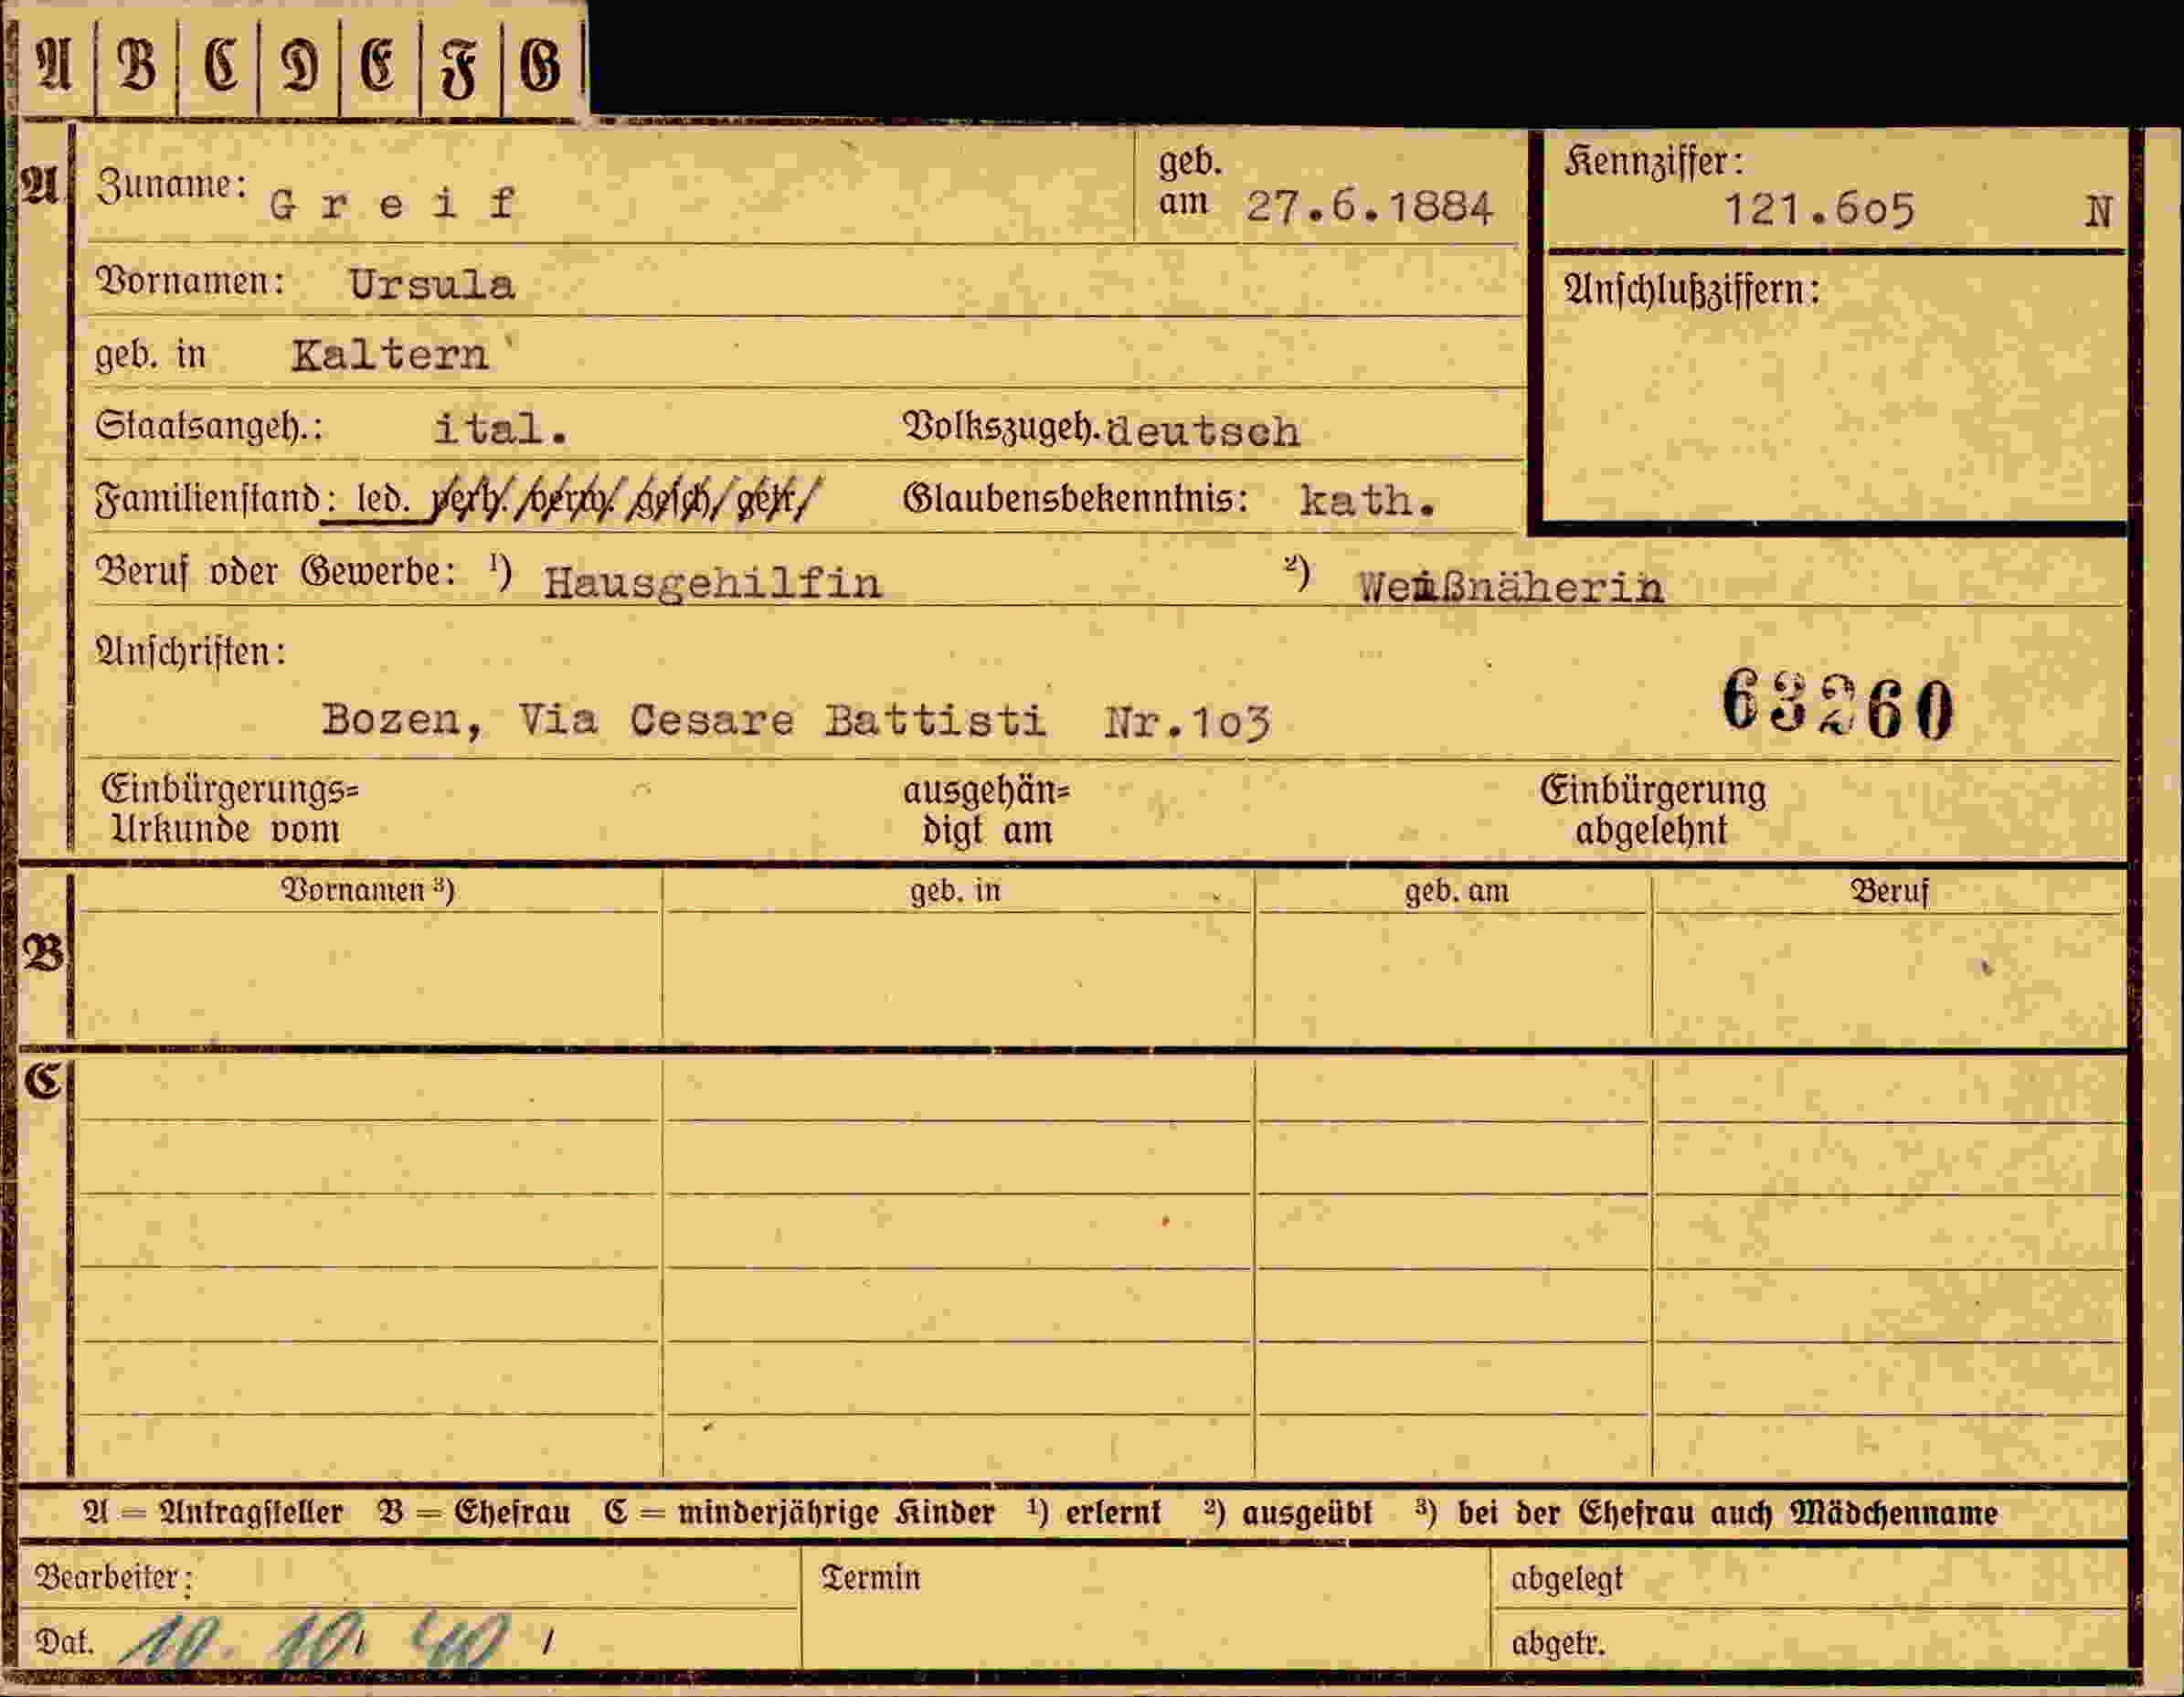 A B C D E F G
A Zuname: Greif geb. am 27.6.1884 Kennziffer: 121.6o5 N
Vornamen: Ursula Anschlußziffern:
geb. in Kaltern
Staatsangeh.: ital. Volkszugeh. deutsch
Familienstand: led. verh. verw. gesch. getr. Glaubensbekenntnis: kath.
Beruf oder Gewerbe: ¹) Hausgehilfin ²) Weißnäherin
Anschriften:
Bozen, Via Cesare Battisti Nr.1o3 63260
Einbürgerungs=
Urkunde vom
ausgehän=
digt am
Einbürgerung
abgelehnt
B Vornamen ³) geb. in geb. am Beruf
C
A = Antragsteller B = Ehefrau C = minderjährige Kinder ¹) erlernt ²) ausgeübt ³) bei der Ehefrau auch Mädchenname
Bearbeiter: Termin abgelegt
Dat. 10. 10. 40 abgetr.